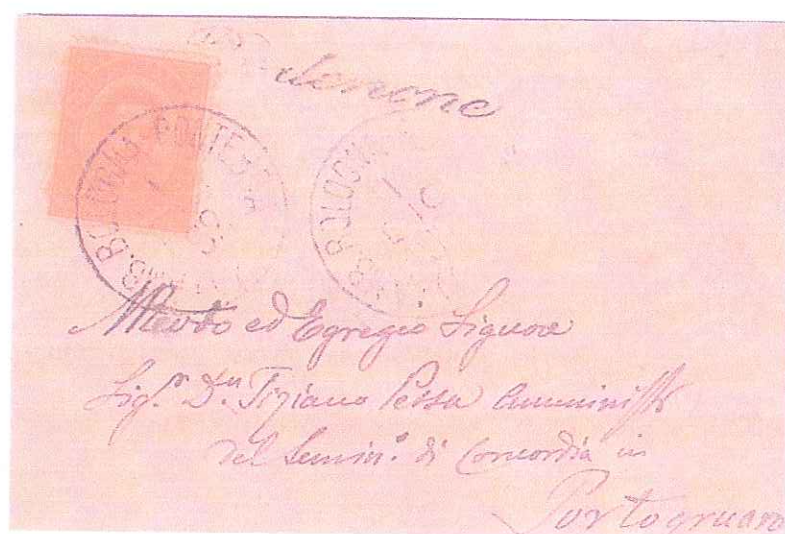 Pordenone
AMB. BOLOGNA-PONTEBBA
AMB. BOLOGNA
ed Egregio Signore
Sig.r D.n Tiziano Pessa Amministr
del Semin.o di Concordia in
Portogruaro